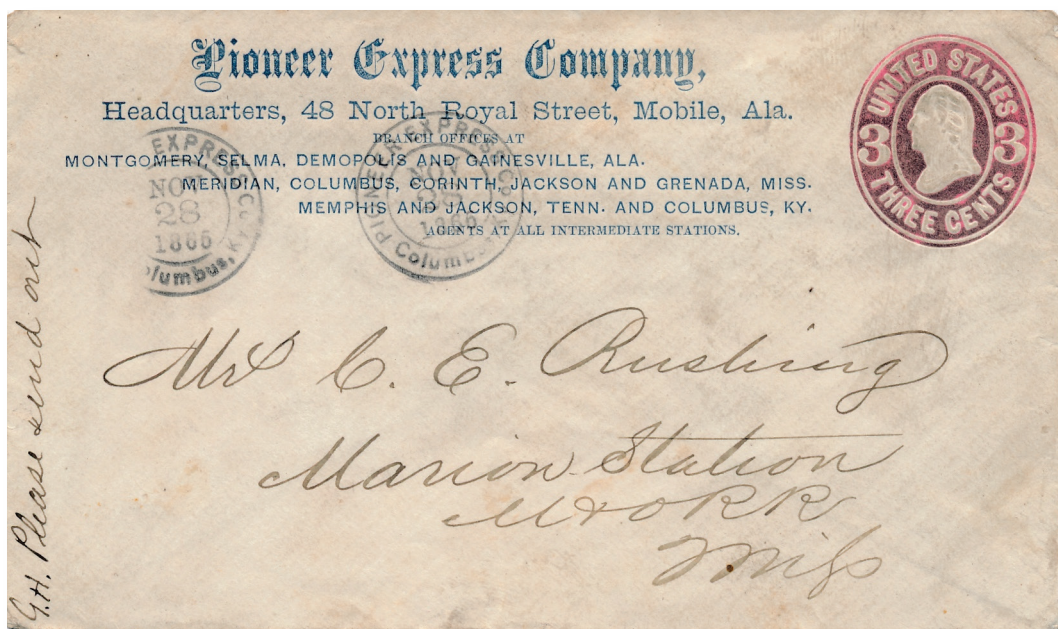 Pioneer Express Company,
Headquarters, 48 North Royal Street, Mobile, Ala.
BRANCH OFFICES AT
MONTGOMERY, SELMA, DEMOPOLIS AND GAINESVILLE, ALA.
MERIDIAN, COLUMBUS, CORINTH, JACKSON AND GRENADA, MISS.
MEMPHIS AND JACKSON, TENN. AND COLUMBUS, KY.
AGENTS AT ALL INTERMEDIATE STATIONS.
UNITED STATES
3 3
THREE CENTS
EXPRESS Co.
NOV
28
1865
Columbus, Ky.
PIONEER EXPRESS Co.
NOV
1865
Columbus, Ky.
Mr C. E. Rushing
Marion Station
M&ORR
Miss
G.H. Please send out